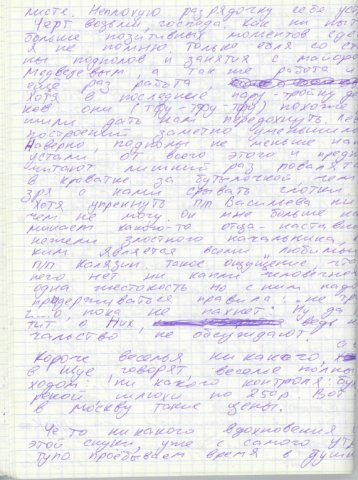 писте. Неплохую разрядочку себе ус
Черт возьми господа как ни пы
больше позитивных моментов сде
я не помню. Только если со ст
ны подполов и занятия с майоро
Медведевым, а так же работа
еще раз работа
Хотя в последние пару-тройку де
ков они (тфу-тфу-тфу) похоже
шили дать нам передохнуть.
построений заметно уменьшили
Наверно, подполы не меньше на
устали от всего этого и предп
читают лишний раз поваляться
в кроватке за бутылочкой чем
зря с нами срывать глотки
Хотя упрекнуть п/п Васильева ни
чем не могу. Он мне больше на
минает какого-то отца-наставни
нежели злостного начальника
ким является всеми любимый
п/п Калязин. Такое ощущение, что
него нет ни капли человечно
одна жестокость. Но с ним надо
придерживаться правила: не тр
г...о, пока не пахнет. Ну да
тит о них, ведь н
чальство не обсуждают.
Короче веселья никакого, а
в Шуе говорят, веселье полным
ходом: никакого контроля,
рекой шлюхи по 250р. Вот
в Москву такие цены.
Че-то никакого вдохновения
этой скуки, уже с самого ут
тупо проёбываем время в душн